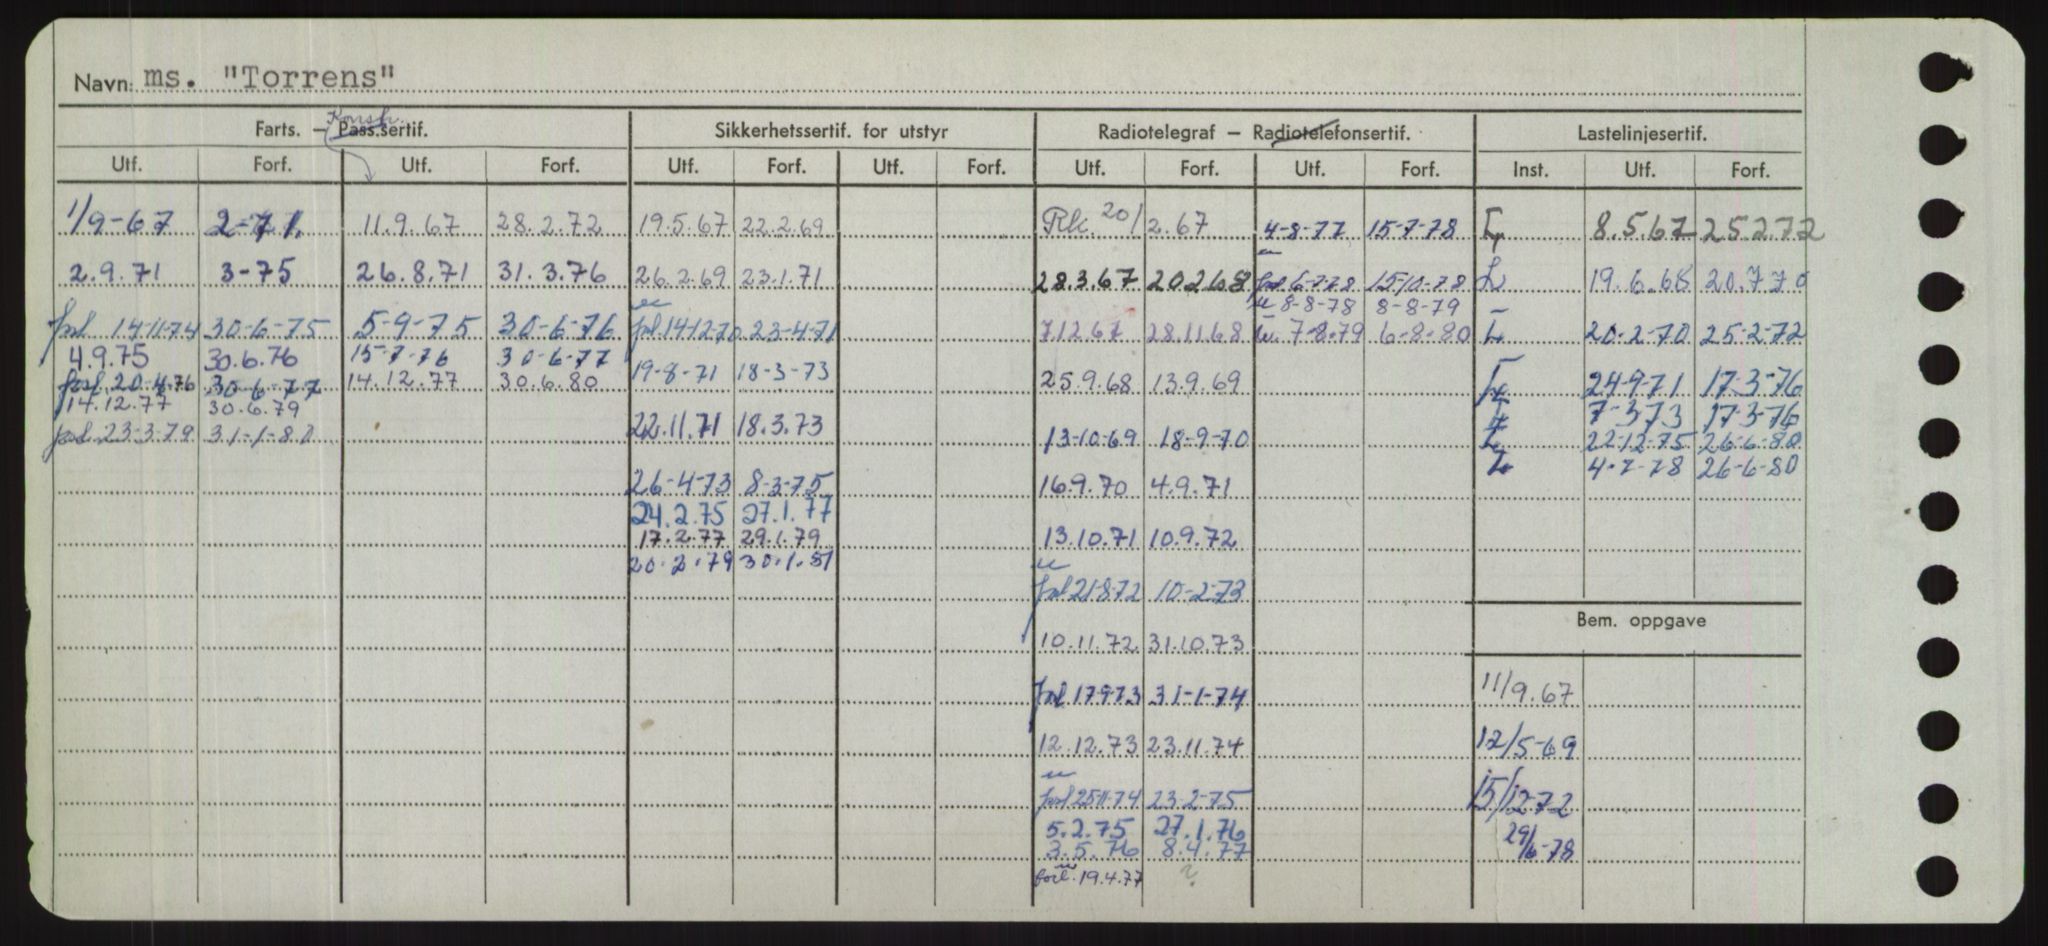 Navn: ms. "Torrens"
Konstr.
Farts. – Pass.sertif. Sikkerhetssertif. for utstyr Radiotelegraf – Radiotelefonsertif. Lastelinjesertif.
Utf. Forf. Utf. Forf. Utf. Forf. Utf. Forf. Utf. Forf. Utf. Forf. Inst. Utf. Forf.
1/9-67 2-71. 11.9.67 28.2.72 19.5.67 22.2.69 Rk. 20/2.67 4-8-77 15-7-78 8.5.67 25.2.72
2.9.71 3-75 26.8.71 31.3.76 26.2.69 23.1.71 28.3.67 20.2.68 15/10-78 L 19.6.68 20.7.70
u 8-8-78 8-8-79
forl 14-11-74 30-6-75 5-9-75 30-6-76 forl 14-12-70 23-4-71 7.12.67 28.11.68 u. 7-8-79 6-8-80 L 20-2-70 25-2-72
4.9.75 30.6.76 15-7-76 30-6-77
forl. 20-4-76 30-6-77 14.12.77 30.6.80 19-8-71 18-3-73 25.9.68 13.9.69 24-9-71 17-3-76
14.12.77 30.6.79 7-3-73 17-3-76
forl. 23-3-79 31-1-80 22.11.71 18.3.73 13-10-69 18-9-70 L 22-12-75 26-6-80
L 4-7-78 26-6-80
26-4-73 8-3-75 16.9.70 4.9.71
24.2.75 27.1.77
17.2.77 29.1.79 13.10.71 10.9.72
20.2.79 30.1.81
u
forl 21-8-72 10-2-73
Bem. oppgave
10.11.72 31.10.73
forl 17-9-73 31-1-74 11/9.67
12.12.73 23.11.74 12/5-69
u
forl 25-11-74 23-2-75 15/12-72
5.2.75 27.1.76
3.5.76 8.4.77 29/6-78
u
forl. 19.4.77 ?